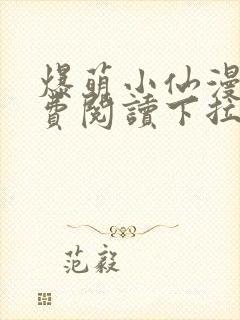 爆萌小仙漫
费阅讀下拉
范毅